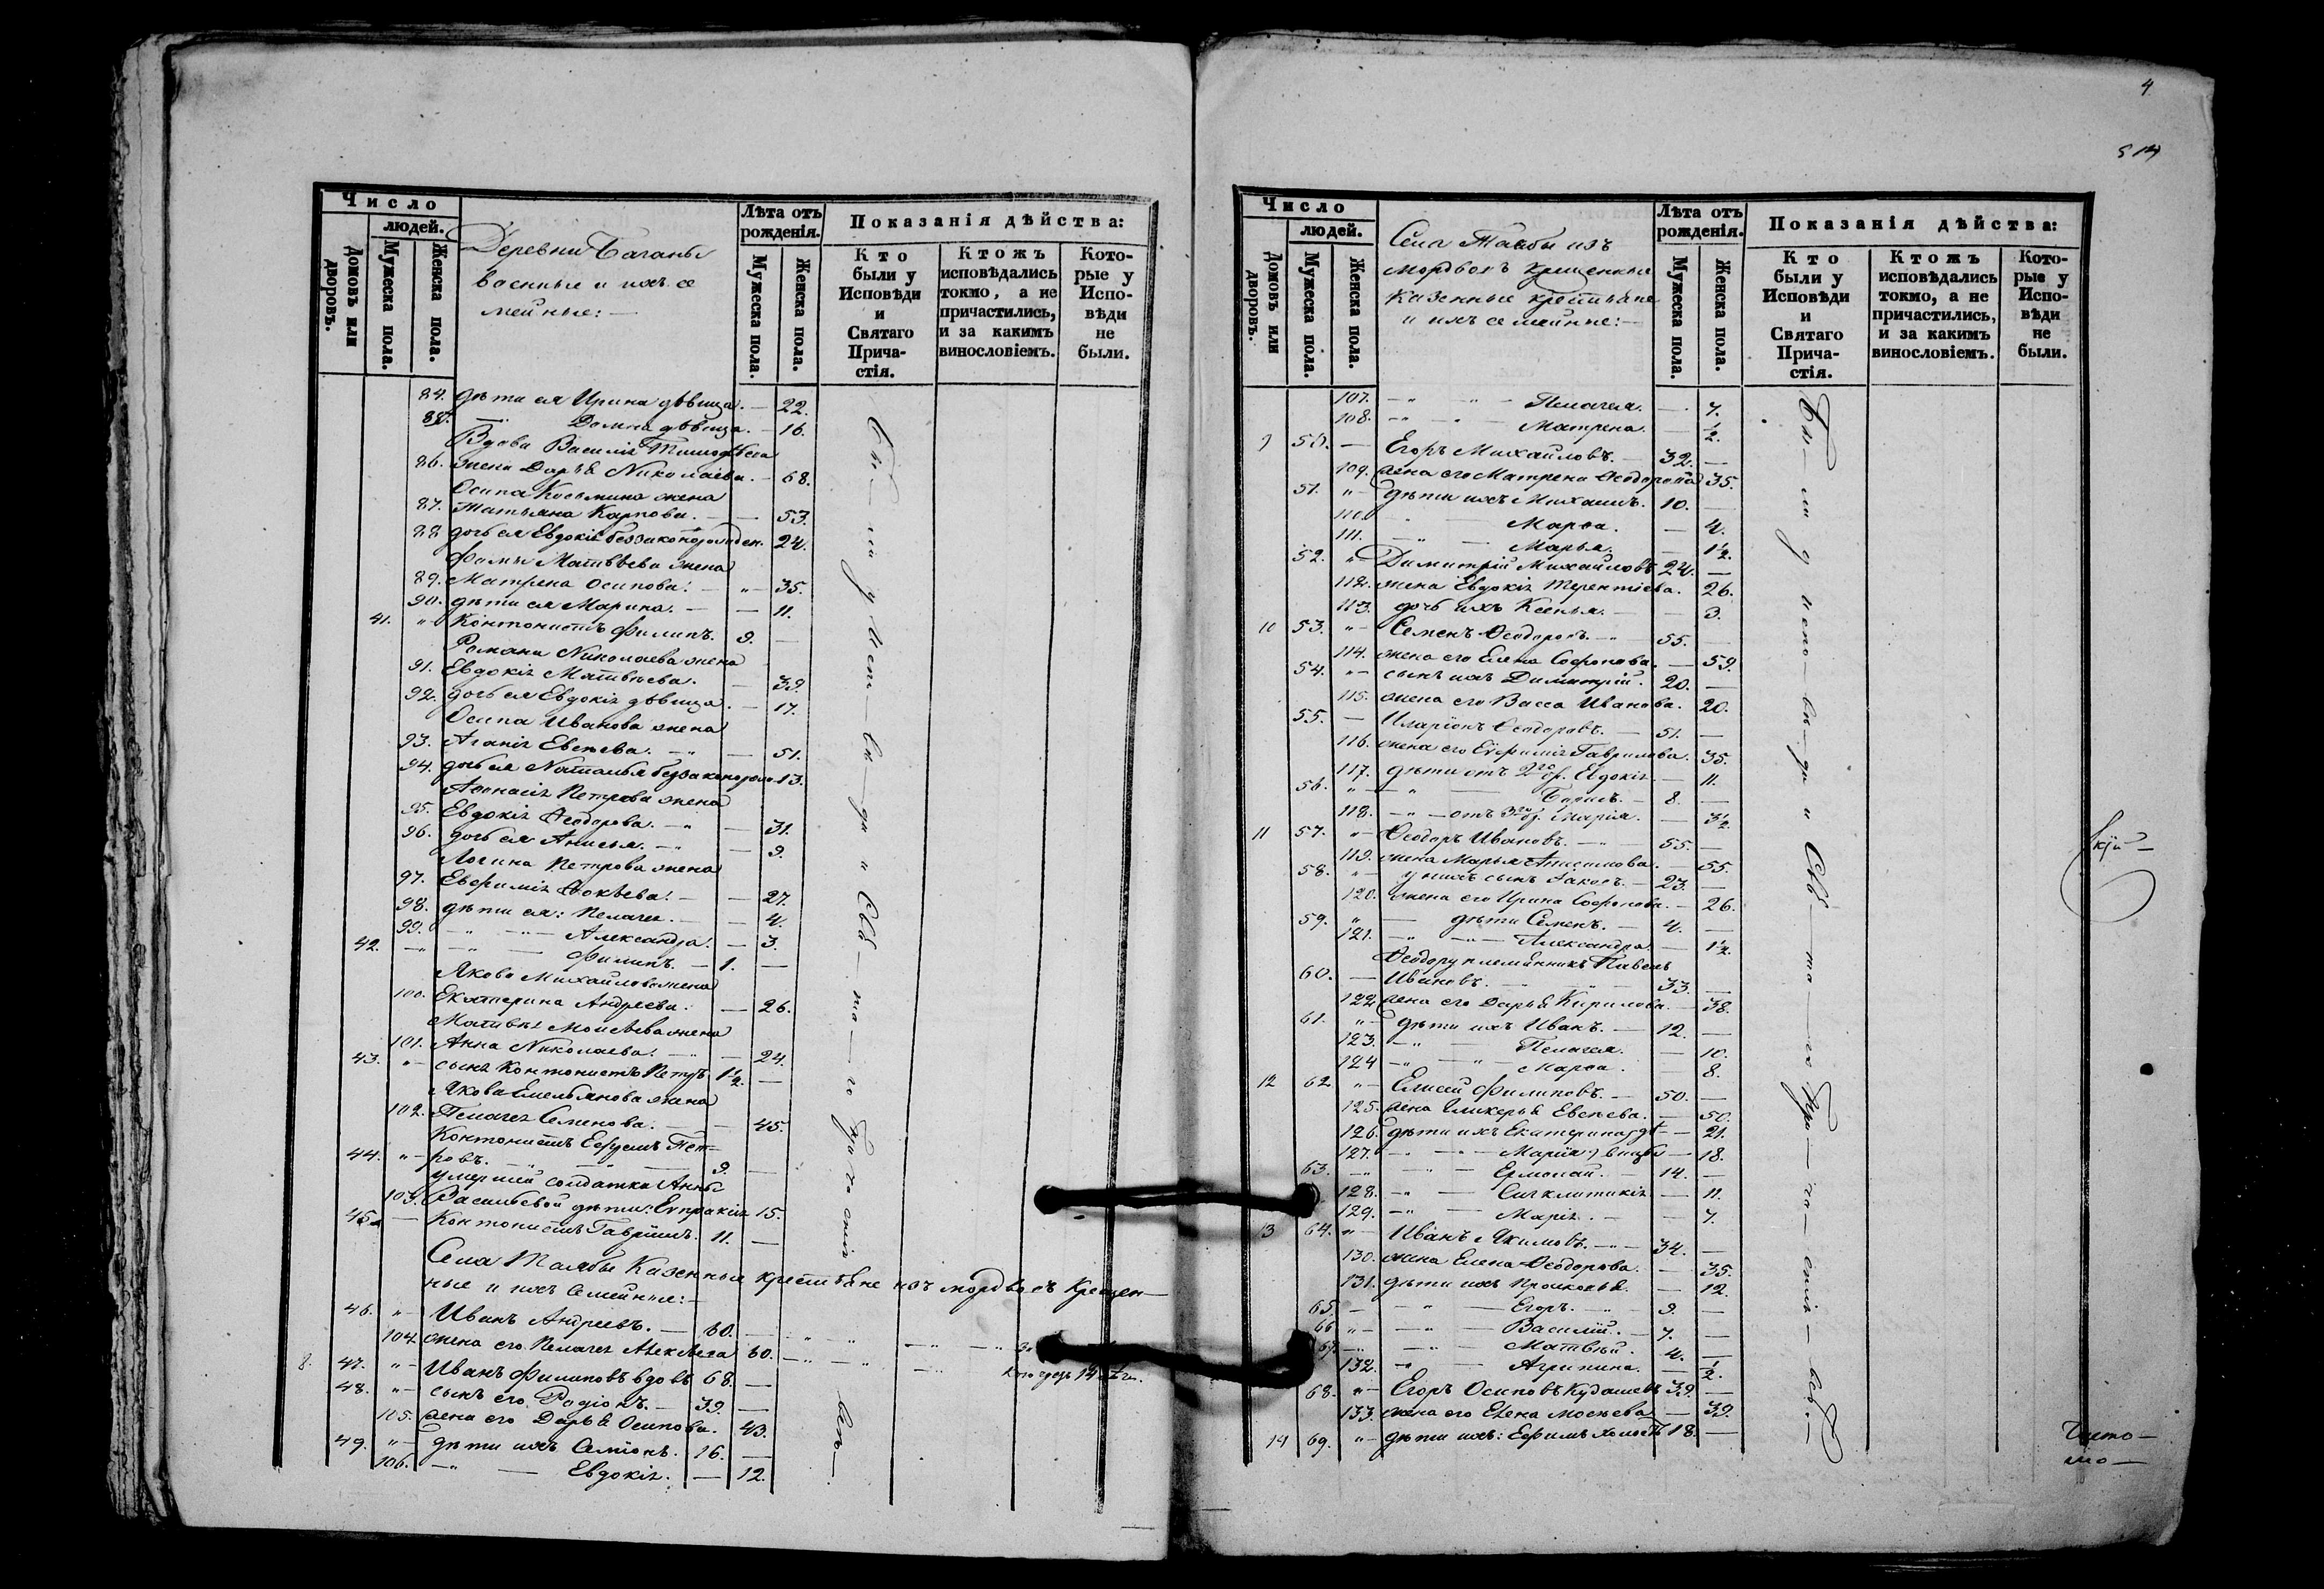 Число
людей.
Домовъ или дворовъ.
Мужеска пола.
Женска пола.
Деревни Баганы
военные и ихъ се
мейные: —
Лѣта отъ рожденія.
Мужеска пола.
Женска пола.
Показанія дѣйства:
Кто были у Исповѣди и Святаго Причастія.
Ктожъ исповѣдались токмо, а не причастились, и за какимъ винословіемъ.
Которые у Исповѣди не были.
84. дѣти ея Ирина дѣвица. — 22.
85. — Домна дѣвица. — 16.
Вдова Василія Тимоѳѣева
86. жена Дарья Николаева. — 68.
Осипа Косьмина жена
87. Татьяна Карпова. — 53.
88 дочь ея Евдокія беззаконорожден. 24.
Фомы Матвѣева жена
89. Матрена Осипова. — " — 35.
90. дѣти ея Марина. — — 11.
41. " Контонистъ Филипъ. 9. —
Романа Николаева жена
91. Евдокія Матвѣева. — 39.
92. дочь ея Евдокія дѣвица. — 17.
Осипа Иванова жена
93. Агапія Евсѣева. — " — 51.
94. дочь ея Наталья беззаконорож 13.
Аѳонасія Петрова жена
95. Евдокія Ѳеодорова. — " — 31.
96. дочь ея Анисья. — " — 9.
Логина Петрова жена
97. Евфимія Фокѣева. — — 27.
98. дѣти ея: Пелагея. — — 4.
99. — " — Александра. — 3.
42. — " — Филипъ. — 1. —
Якова Михайлова жена
100. Екатерина Андреева. — 26.
Матвѣя Моисѣева жена
101. Анна Николаева. — " — 24.
43. " — сынъ Контонистъ Петръ 1½. —
Якова Емельянова жена
102. Пелагея Семенова. — — 45.
Контонистъ Ефремъ Пет-
44. " — ровъ. — " — 9. —
умершей солдатки Анны
103. Васильевой дѣти: Евпраксія 15.
45. — Контонистъ Гавріилъ. 11. —
Села Талбы Казенные крестьяне изъ мордвовъ Крещен—
ные и ихъ семейные: —
46. " Иванъ Андреевъ. — 60. —
104. жена его Пелагея Алекѣева 60. — " — " —
8. 47. " — Иванъ Филиповъ вдовъ 68. —
48. " — сынъ его Родіонъ. — 39. —
105. жена его Дарья Осипова. 43.
49. " — дѣти ихъ Семіонъ. 16. —
106. — " — Евдокія. — 12.
Бы — ли у Испо — вѣ — ди и Свя — та — го Причастія всѣ —
4
514
Число
людей.
Домовъ или дворовъ.
Мужеска пола.
Женска пола.
Села Талбы изъ
мордвовъ крещенные
казенные крестьяне
и ихъ семейные: —
Лѣта отъ рожденія.
Мужеска пола.
Женска пола.
Показанія дѣйства:
Кто были у Исповѣди и Святаго Причастія.
Ктожъ исповѣдались токмо, а не причастились, и за какимъ винословіемъ.
Которые у Исповѣди не были.
107. — " — Пелагея. — 7.
108. — " — Матрена. — ½.
9 50. — Егоръ Михайловъ. — 32. —
109. жена его Матрена Ѳеодорова 35.
51. " — дѣти ихъ Михаилъ. 10. —
110. — Марѳа. — 4.
111. — " — Марья. — 1½.
52. " Димитрій Михайловъ 24. —
112. жена Евдокія Терентіева. 26.
113. дочь ихъ Ксенья. — — 3.
10 53. " — Семенъ Ѳеодоровъ. — 55. —
114. жена его Елена Софронова. — 59.
54. " — сынъ ихъ Димитрій. 20. —
115. жена его Васса Иванова. 20.
55. — Иларіонъ Ѳеодоровъ. — 51. —
116. жена его Евфимія Гаврилова. 35.
117. дѣти отъ 2го бр. Евдокія — 11.
56. " — " — Борисъ. — 8. —
118. — " — отъ 3го бр. Марія. — 3½.
11 57. " — Ѳеодоръ Ивановъ. — 55. —
119. жена Марья Анисимова. — 55.
58. " — у нихъ сынъ Іаковъ. — 23. —
120. жена его Ирина Софронова. — 26.
59. " — дѣти Семенъ. — 4. —
121. — " — Александра. — 1½.
Ѳеодору племянникъ Павелъ
60. — Ивановъ. — 33. —
122. жена его Дарья Кирилова. — 38.
61. " — дѣти ихъ Иванъ. — 12. —
123. — " — Пелагея. — 10.
124 — " — Марѳа. — 8.
12 62. " — Елисей Филиповъ. — 50. —
125. жена Гликерья Евсѣева. — 50.
126. дѣти ихъ Екатерина дѣ — 21.
127. — " — Марія вицы — 18.
63. — " — Ермолай. — 14. —
128. — " — Синклитикія — 11.
129. — " — Марія. — — 7.
13 64. " — Иванъ Якимовъ. — " — 34. —
130. жена Елена Ѳеодорова. — 35.
131. дѣти ихъ Прасковья. — 12.
65. — " — Егоръ. — " — 9. —
66 " — " — Василій. — 7. —
67. — " — Матвѣй. 4. —
132. — " — Агрипина. — ½.
68. " — Егоръ Осиповъ Кудашевъ 39. —
133. жена его Елена Мосѣева — 39.
14 69. " — дѣти ихъ: Ефимъ холостъ 18. —
Бы — ли у испо — вѣ — ди и Свя — та — го При — ча — стія — всѣ. —